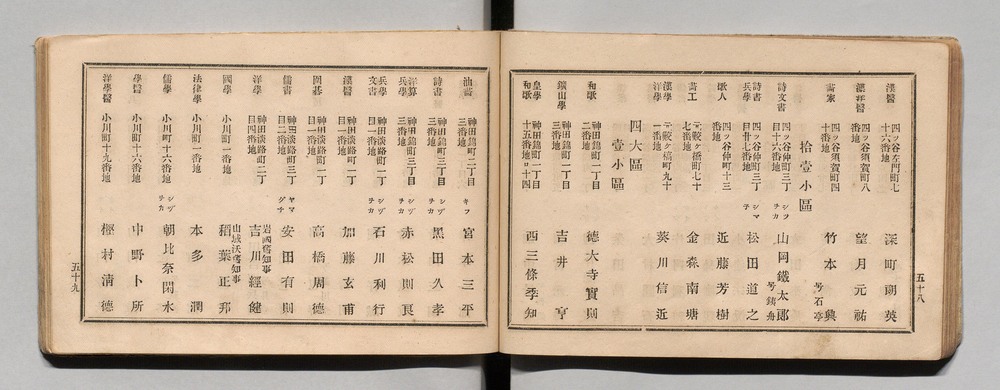 漢醫 四ツ谷左門町七十六番地 深町朗英
漢洋醫 四ツ谷須賀町八番地 望月元祐
畵家 四ツ谷須賀町四十番地 竹本興 号石亭
拾壹小區
詩文書 四ツ谷仲町三丁目十六番地 シヅチカ 山岡鐵太郎 号鐵舟
詩書兵學 四ツ谷仲町三丁目廿七番地 シマ子 松田道之
歌人 四ツ谷仲町十三番地 近藤芳樹
畵工 元鮫ケ橋町七十七番地 金森南塘
漢學洋學 元鮫ケ橋町九十一番地 葵川信近
四大區
壹小區
和歌 神田錦町一丁目二番地 德大寺實則
鑛山學 神田錦町一丁目三番地 吉井亨
皇學和歌 神田錦町一丁目十五番地ヨ十四 西三條季知
五十八
油畵 神田錦町二丁目三番地 キフ 宮本三平
詩書 神田錦町三丁目三番地 シヅ 黑田久孝
洋算兵學 神田錦町三丁目三番地 シヅチカ 赤松則良
兵學文書 神田淡路町一丁目一番地 シヅチカ 石川利行
漢醫 神田淡路町一丁目一番地 加藤玄甫
圍碁 神田淡路町一丁目一番地 高橋周德
儒書 神田淡路町三丁目二番地 ヤマグチ 安田有則
洋學 神田淡路町二丁目四番地 岩國舊知事 吉川經健
國學 小川町一番地 山城淀舊知事 稻葉正邦
法律學 小川町一番地 本多潤
儒學 小川町十六番地 シヅチカ 朝比奈閑水
學醫 小川町十六番地 中野卜所
洋學醫 小川町十九番地 樫村淸德
五十九